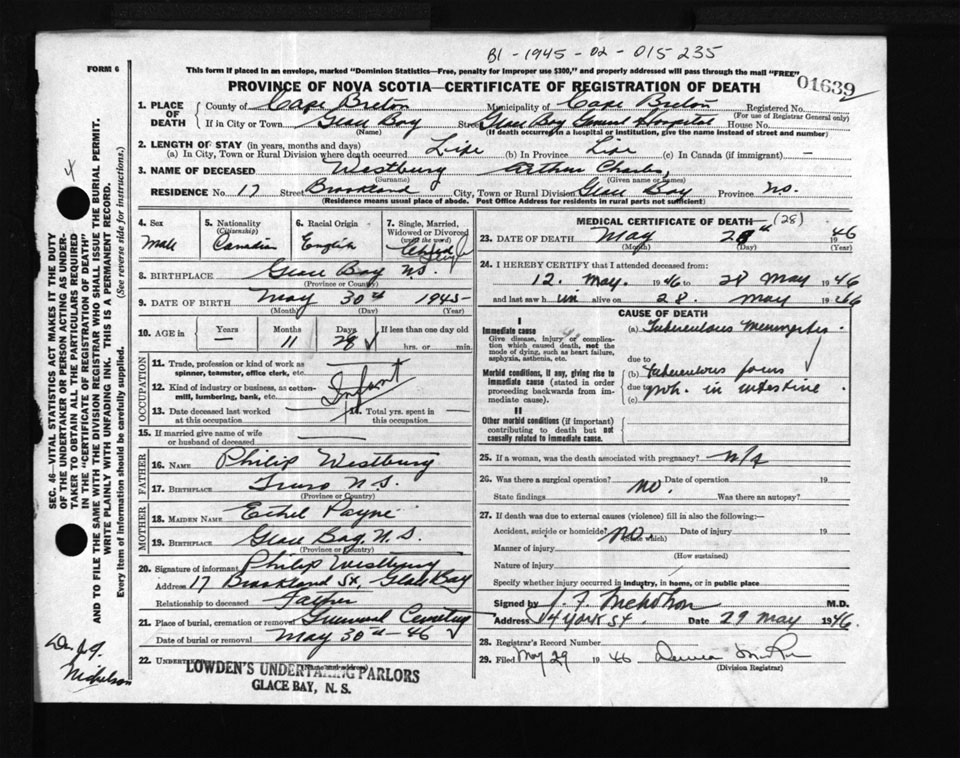 B1 - 1945 - 02 - 015235
FORM 6
This form if placed in an envelope, marked "Dominion Statistics—Free, penalty for improper use $300," and properly addressed will pass through the mail "FREE"
01639
PROVINCE OF NOVA SCOTIA—CERTIFICATE OF REGISTRATION OF DEATH
1. PLACE OF DEATH County of Cape Breton Municipality of Cape Breton Registered No.
(For use of Registrar General only)
If in City or Town Glace Bay Street Glace Bay General Hospital House No.
(Name) (If death occurred in a hospital or institution, give the name instead of street and number)
2. LENGTH OF STAY (in years, months and days)
(a) In City, Town or Rural Division where death occurred Life (b) In Province Life (c) In Canada (if immigrant) —
3. NAME OF DECEASED Westbury Arthur Charles
(Surname) (Given name or names)
RESIDENCE No. 17 Street Brookland City, Town or Rural Division Glace Bay Province N.S.
(Residence means usual place of abode. Post Office Address for residents in rural parts not sufficient)
4. Sex Male
5. Nationality (Citizenship) Canadian
6. Racial Origin English
7. Single, Married, Widowed or Divorced (write the word) Single
8. BIRTHPLACE Glace Bay N.S.
(Province or Country)
9. DATE OF BIRTH May 30th 1945
(Month) (Day) (Year)
10. AGE in Years — Months 11 Days 28 If less than one day old
hrs. or min.
OCCUPATION
11. Trade, profession or kind of work as spinner, teamster, office clerk, etc.
12. Kind of industry or business, as cotton-mill, lumbering, bank, etc. Infant
13. Date deceased last worked at this occupation —
14. Total yrs. spent in this occupation —
15. If married give name of wife or husband of deceased —
FATHER
16. NAME Philip Westbury
17. BIRTHPLACE Truro N.S.
(Province or Country)
MOTHER
18. MAIDEN NAME Ethel Payne
19. BIRTHPLACE Glace Bay, N.S.
(Province or Country)
20. Signature of informant Philip Westbury
Address 17 Brookland St, Glace Bay
Relationship to deceased Father
21. Place of burial, cremation or removal Greenwood Cemetery
Date of burial or removal May 30th - 46
22. UNDERTAKER (Name and address)
LOWDEN'S UNDERTAKING PARLORS
GLACE BAY, N. S.
MEDICAL CERTIFICATE OF DEATH (28)
23. DATE OF DEATH May 28th 1946
(Month) (Day) (Year)
24. I HEREBY CERTIFY that I attended deceased from:
12. May. 1946 to 28 May 1946
and last saw him alive on 28. May 1946
CAUSE OF DEATH
I
Immediate cause
Give disease, injury or complication which caused death, not the mode of dying, such as heart failure, asphyxia, asthenia, etc.
(a) Tuberculous Meningitis.
due to
Morbid conditions, if any, giving rise to immediate cause (stated in order proceeding backwards from immediate cause).
(b) Tuberculous focus
(c) prob. in intestine
II
Other morbid conditions (if important) contributing to death but not causally related to immediate cause.
25. If a woman, was the death associated with pregnancy? n/a
26. Was there a surgical operation? no. Date of operation 19
State findings Was there an autopsy?
27. If death was due to external causes (violence) fill in also the following:—
Accident, suicide or homicide? no Date of injury 19
(State which)
Manner of injury
(How sustained)
Nature of injury
Specify whether injury occurred in industry, in home, or in public place
Signed by M.D.
Address 14 York St. Date 29 May 1946.
28. Registrar's Record Number
29. Filed May 29 1946
(Division Registrar)
SEC. 46—VITAL STATISTICS ACT MAKES IT THE DUTY
OF THE UNDERTAKER OR PERSON ACTING AS UNDER-
TAKER TO OBTAIN ALL THE PARTICULARS REQUIRED
IN THE "CERTIFICATE OF REGISTRATION OF DEATH"
AND TO FILE THE SAME WITH THE DIVISION REGISTRAR WHO SHALL ISSUE THE BURIAL PERMIT.
WRITE PLAINLY WITH UNFADING INK. THIS IS A PERMANENT RECORD.
Every item of information should be carefully supplied. (See reverse side for instructions.)
4